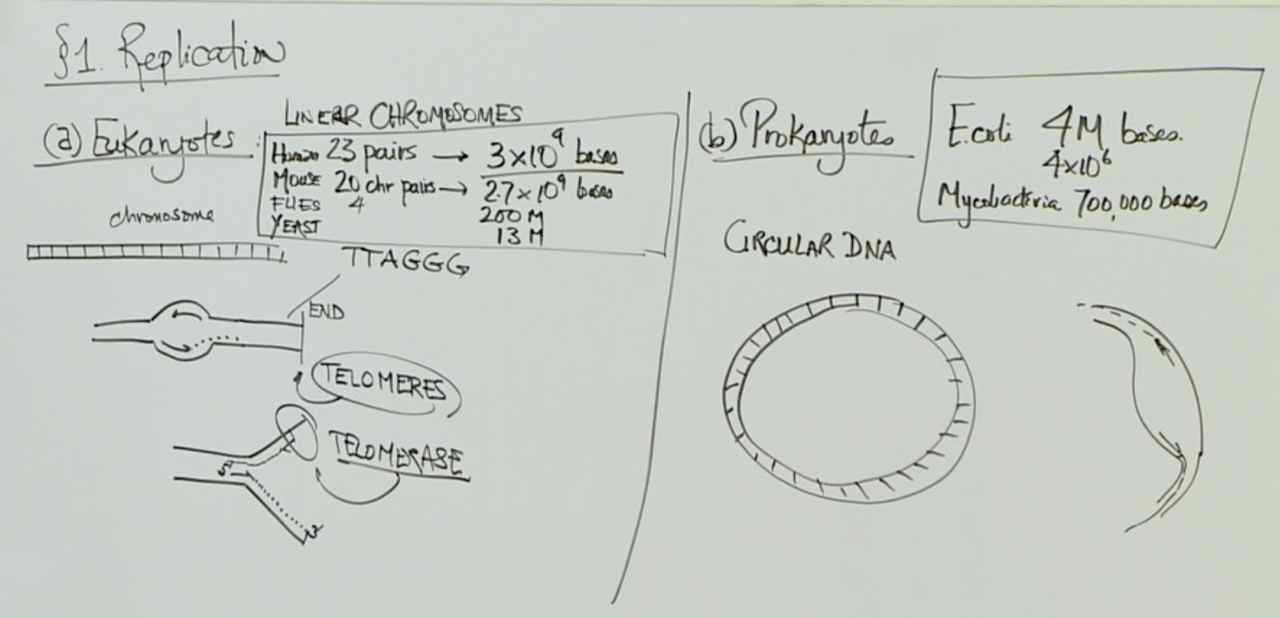 §1. Replication
(a) Eukaryotes
LINEAR CHROMOSOMES
Human 23 pairs → 3×10⁹ bases
Mouse 20 chr pairs → 2.7×10⁹ bases
FLIES 4 200 M
YEAST 13 M
chromosome
TTAGGG
END
TELOMERES
TELOMERASE
5'
3'
(b) Prokaryotes
E.coli 4M bases.
4×10⁶
Mycobacteria 700,000 bases
CIRCULAR DNA